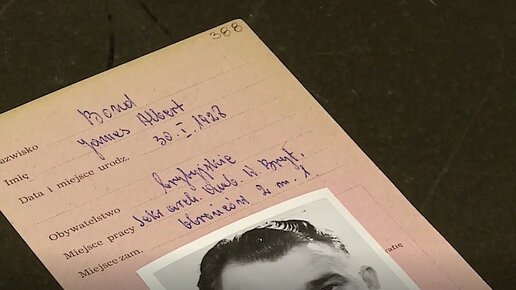 388
azwisko Bond
Imię James Albert
Data i miejsce urodz. 30.I.1928
Obywatelstwo brytyjskie
Miejsce pracy Sekr. arch. Amb. W. Bryt.
Miejsce zam. Wronców 2 m 1
grafię